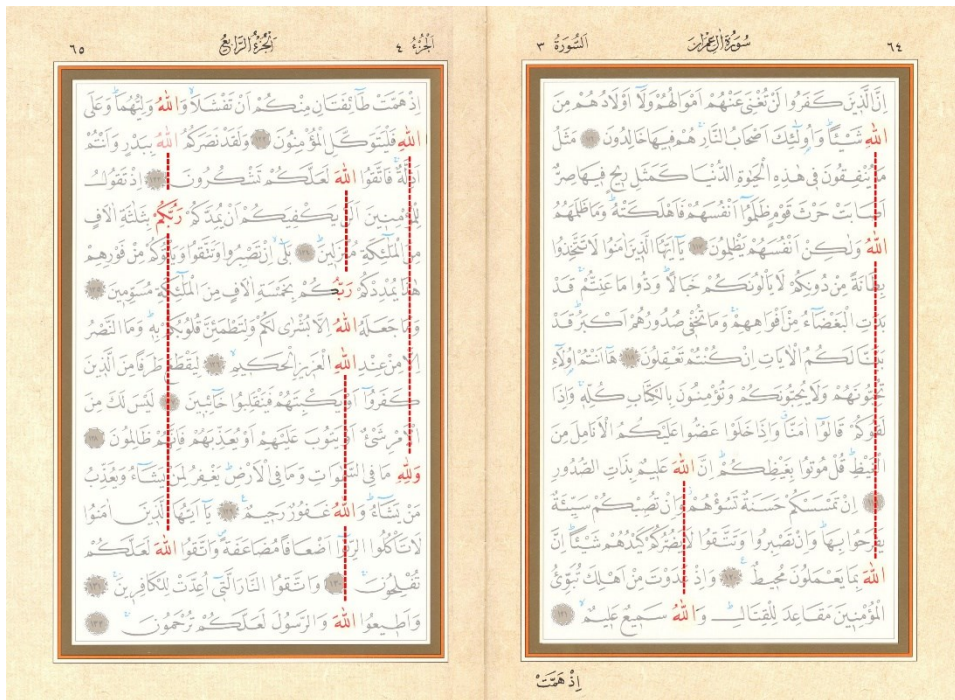 ٦٤ سُورَةُ اٰلِ عِمْرٰنَ اَلسُّورَةُ ٣
اِنَّ الَّذِينَ كَفَرُوا لَنْ تُغْنِىَ عَنْهُمْ اَمْوَالُهُمْ وَلَٓا اَوْلَادُهُمْ مِنَ
اللّٰهِ شَيْـًٔاۜ وَاُو۬لٰٓئِكَ اَصْحَابُ النَّارِۚ هُمْ فِيهَا خَالِدُونَ ﴿١١٦﴾ مَثَلُ
مَا يُنْفِقُونَ فِى هٰذِهِ الْحَيٰوةِ الدُّنْيَا كَمَثَلِ رِيحٍ فِيهَا صِرٌّ
اَصَابَتْ حَرْثَ قَوْمٍ ظَلَمُٓوا اَنْفُسَهُمْ فَاَهْلَكَتْهُۜ وَمَا ظَلَمَهُمُ
اللّٰهُ وَلٰكِنْ اَنْفُسَهُمْ يَظْلِمُونَ ﴿١١٧﴾ يَٓا اَيُّهَا الَّذِينَ اٰمَنُوا لَا تَتَّخِذُوا
بِطَانَةً مِنْ دُونِكُمْ لَا يَأْلُونَكُمْ خَبَالًاۜ وَدُّوا مَا عَنِتُّمْۚ قَدْ
بَدَتِ الْبَغْضَٓاءُ مِنْ اَفْوَاهِهِمْۚ وَمَا تُخْفِى صُدُورُهُمْ اَكْبَرُۜ قَدْ
بَيَّنَّا لَكُمُ الْاٰيَاتِ اِنْ كُنْتُمْ تَعْقِلُونَ ﴿١١٨﴾ هَٓا اَنْتُمْ اُو۬لَٓاءِ
تُحِبُّونَهُمْ وَلَا يُحِبُّونَكُمْ وَتُؤْمِنُونَ بِالْكِتَابِ كُلِّهِۚ وَاِذَا
لَقُوكُمْ قَالُٓوا اٰمَنَّاۗ وَاِذَا خَلَوْا عَضُّوا عَلَيْكُمُ الْاَنَامِلَ مِنَ
الْغَيْظِۜ قُلْ مُوتُوا بِغَيْظِكُمْۜ اِنَّ اللّٰهَ عَلِيمٌ بِذَاتِ الصُّدُورِ
﴿١١٩﴾ اِنْ تَمْسَسْكُمْ حَسَنَةٌ تَسُؤْهُمْۘ وَاِنْ تُصِبْكُمْ سَيِّئَةٌ
يَفْرَحُوا بِهَاۜ وَاِنْ تَصْبِرُوا وَتَتَّقُوا لَا يَضُرُّكُمْ كَيْدُهُمْ شَيْـًٔاۜ اِنَّ
اللّٰهَ بِمَا يَعْمَلُونَ مُحِيطٌ۟ ﴿١٢٠﴾ وَاِذْ غَدَوْتَ مِنْ اَهْلِكَ تُبَوِّئُ
الْمُؤْمِنِينَ مَقَاعِدَ لِلْقِتَالِۜ وَاللّٰهُ سَمِيعٌ عَلِيمٌۙ ﴿١٢١﴾
اِذْ هَمَّتْ
اَلْجُزْءُ ٤ اَلْجُزْءُ الرَّابِعُ ٦٥
اِذْ هَمَّتْ طَٓائِفَتَانِ مِنْكُمْ اَنْ تَفْشَلَاۙ وَاللّٰهُ وَلِيُّهُمَاۜ وَعَلَى
اللّٰهِ فَلْيَتَوَكَّلِ الْمُؤْمِنُونَ ﴿١٢٢﴾ وَلَقَدْ نَصَرَكُمُ اللّٰهُ بِبَدْرٍ وَاَنْتُمْ
اَذِلَّةٌۚ فَاتَّقُوا اللّٰهَ لَعَلَّكُمْ تَشْكُرُونَ ﴿١٢٣﴾ اِذْ تَقُولُ
لِلْمُؤْمِنِينَ اَلَنْ يَكْفِيَكُمْ اَنْ يُمِدَّكُمْ رَبُّكُمْ بِثَلٰثَةِ اٰلَافٍ
مِنَ الْمَلٰٓئِكَةِ مُنْزَلِينَۜ ﴿١٢٤﴾ بَلٰٓىۙ اِنْ تَصْبِرُوا وَتَتَّقُوا وَيَأْتُوكُمْ مِنْ فَوْرِهِمْ
هٰذَا يُمْدِدْكُمْ رَبُّكُمْ بِخَمْسَةِ اٰلَافٍ مِنَ الْمَلٰٓئِكَةِ مُسَوِّمِينَ ﴿١٢٥﴾
وَمَا جَعَلَهُ اللّٰهُ اِلَّا بُشْرٰى لَكُمْ وَلِتَطْمَئِنَّ قُلُوبُكُمْ بِهِۜ وَمَا النَّصْرُ
اِلَّا مِنْ عِنْدِ اللّٰهِ الْعَزِيزِ الْحَكِيمِۙ ﴿١٢٦﴾ لِيَقْطَعَ طَرَفًا مِنَ الَّذِينَ
كَفَرُٓوا اَوْ يَكْبِتَهُمْ فَيَنْقَلِبُوا خَٓائِبِينَ ﴿١٢٧﴾ لَيْسَ لَكَ مِنَ
الْاَمْرِ شَىْءٌ اَوْ يَتُوبَ عَلَيْهِمْ اَوْ يُعَذِّبَهُمْ فَاِنَّهُمْ ظَالِمُونَ ﴿١٢٨﴾
وَلِلّٰهِ مَا فِى السَّمٰوَاتِ وَمَا فِى الْاَرْضِۜ يَغْفِرُ لِمَنْ يَشَٓاءُ وَيُعَذِّبُ
مَنْ يَشَٓاءُۜ وَاللّٰهُ غَفُورٌ رَحِيمٌ۟ ﴿١٢٩﴾ يَٓا اَيُّهَا الَّذِينَ اٰمَنُوا
لَا تَأْكُلُوا الرِّبٰٓوا اَضْعَافًا مُضَاعَفَةًۖ وَاتَّقُوا اللّٰهَ لَعَلَّكُمْ
تُفْلِحُونَۚ ﴿١٣٠﴾ وَاتَّقُوا النَّارَ الَّتِٓى اُعِدَّتْ لِلْكَافِرِينَۚ ﴿١٣١﴾
وَاَطِيعُوا اللّٰهَ وَالرَّسُولَ لَعَلَّكُمْ تُرْحَمُونَۚ ﴿١٣٢﴾